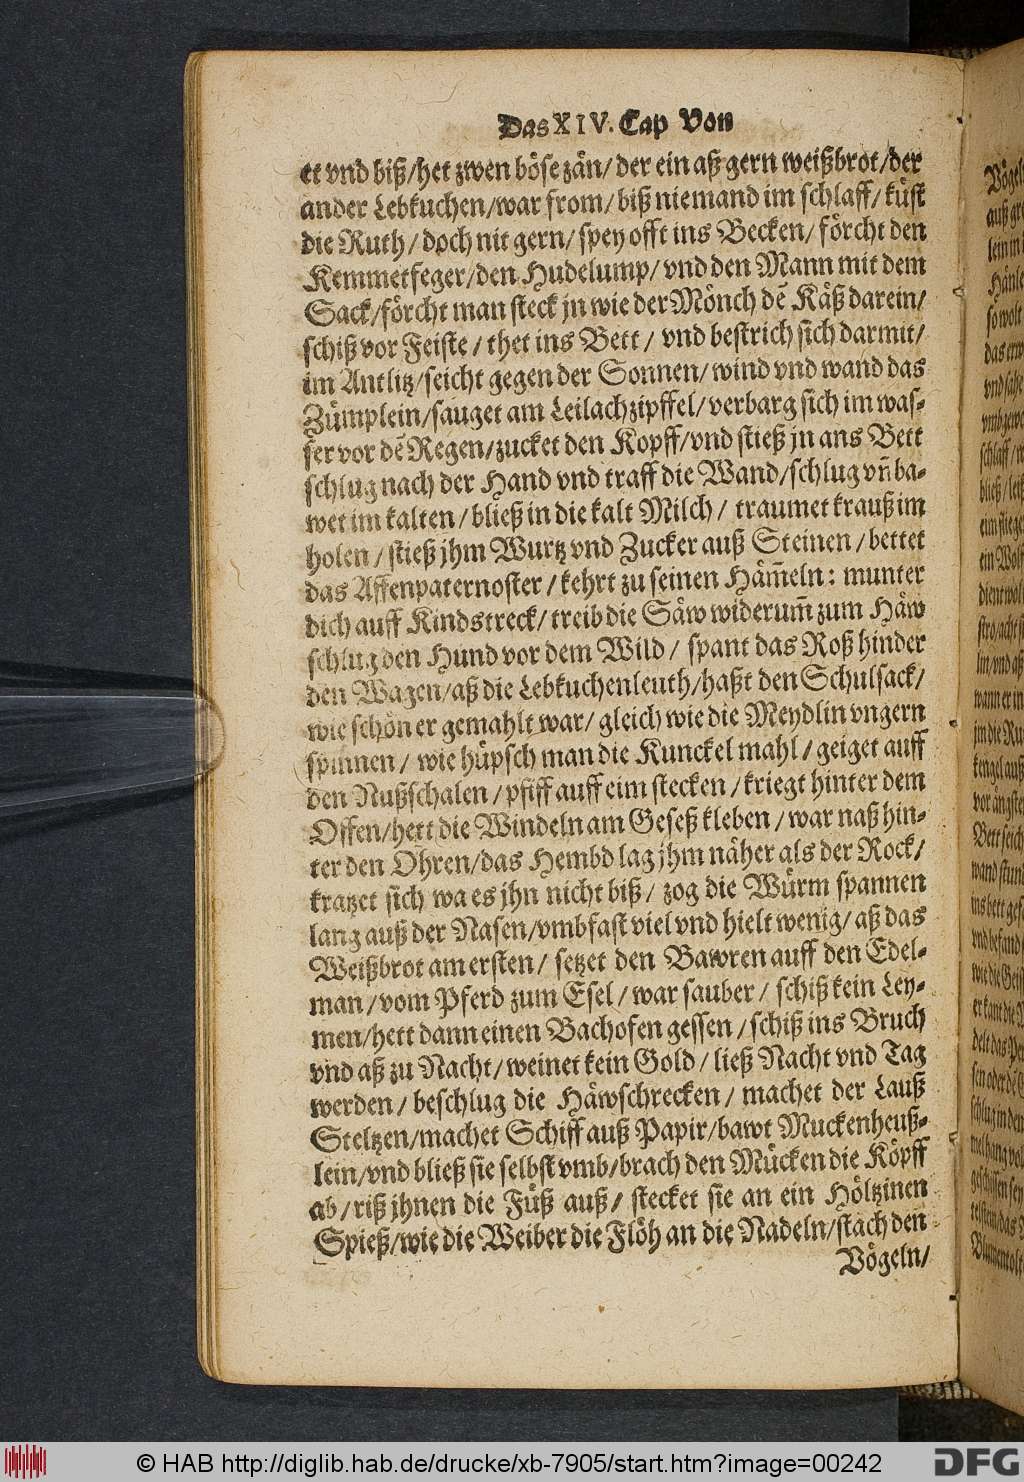 Das XIV. Cap Von
et vnd biß/het zwen böse zän/ der ein aß gern weißbrot/der
ander Lebkuchen/war from/ biß niemand im schlaff/ küst
die Ruth/ doch nit gern/ spey offt ins Becken/ förcht den
Kemmetfeger/den Hudelump/ vnd den Mann mit dem
Sack/förcht man steck jn wie der Mönch dẽ Käß darein/
schiß vor Feiste/ thet ins Bett/ vnd bestrich sich darmit/
im Antlitz/seicht gegen der Sonnen/ wind vnd wand das
Zümplein/sauget am Leilachzipffel/verbarg sich im was-
ser vor dẽ Regen/zucket den Kopff/vnd stieß jn ans Bett
schlug nach der Hand vnd traff die Wand/schlug vñ ba-
wet im kalten/ bließ in die kalt Milch/ traumet krauß im
holen/ stieß jhm Wurtz vnd Zucker auß Steinen/ bettet
das Affenpaternoster/ kehrt zu seinen Häm̃eln: munter
dich auff Kindstreck/ treib die Säw widerum̃ zum Häw
schlug den Hund vor dem Wild/ spant das Roß hinder
den Wagen/aß die Lebkuchenleuth/haßt den Schulsack/
wie schön er gemahlt war/ gleich wie die Meydlin vngern
spinnen/ wie hüpsch man die Kunckel mahl/ geiget auff
den Nußschalen/ pfiff auff eim stecken/ kriegt hinter dem
Offen/hett die Windeln am Geseß kleben/ war naß hin-
ter den Ohren/das Hembd lag jhm näher als der Rock/
kratzet sich wa es jhn nicht biß/ zog die Würm spannen
lang auß der Nasen/vmbfast viel vnd hielt wenig/ aß das
Weißbrot am ersten/ setzet den Bawren auff den Edel-
man/ vom Pferd zum Esel/ war sauber/ schiß kein Ley-
men/hett dann einen Bachofen gessen/ schiß ins Bruch
vnd aß zu Nacht/ weinet kein Gold/ ließ Nacht vnd Tag
werden/ beschlug die Häwschrecken/ machet der Lauß
Steltzen/machet Schiff auß Papir/bawt Muckenheuß-
lein/vnd bließ sie selbst vmb/brach den Mücken die Köpff
ab/ riß jhnen die Füß auß/ stecket sie an ein Höltzinen
Spieß/wie die Weiber die Flöh an die Nadeln/stach den
Vögeln/
© HAB http://diglib.hab.de/drucke/xb-7905/start.htm?image=00242
DFG